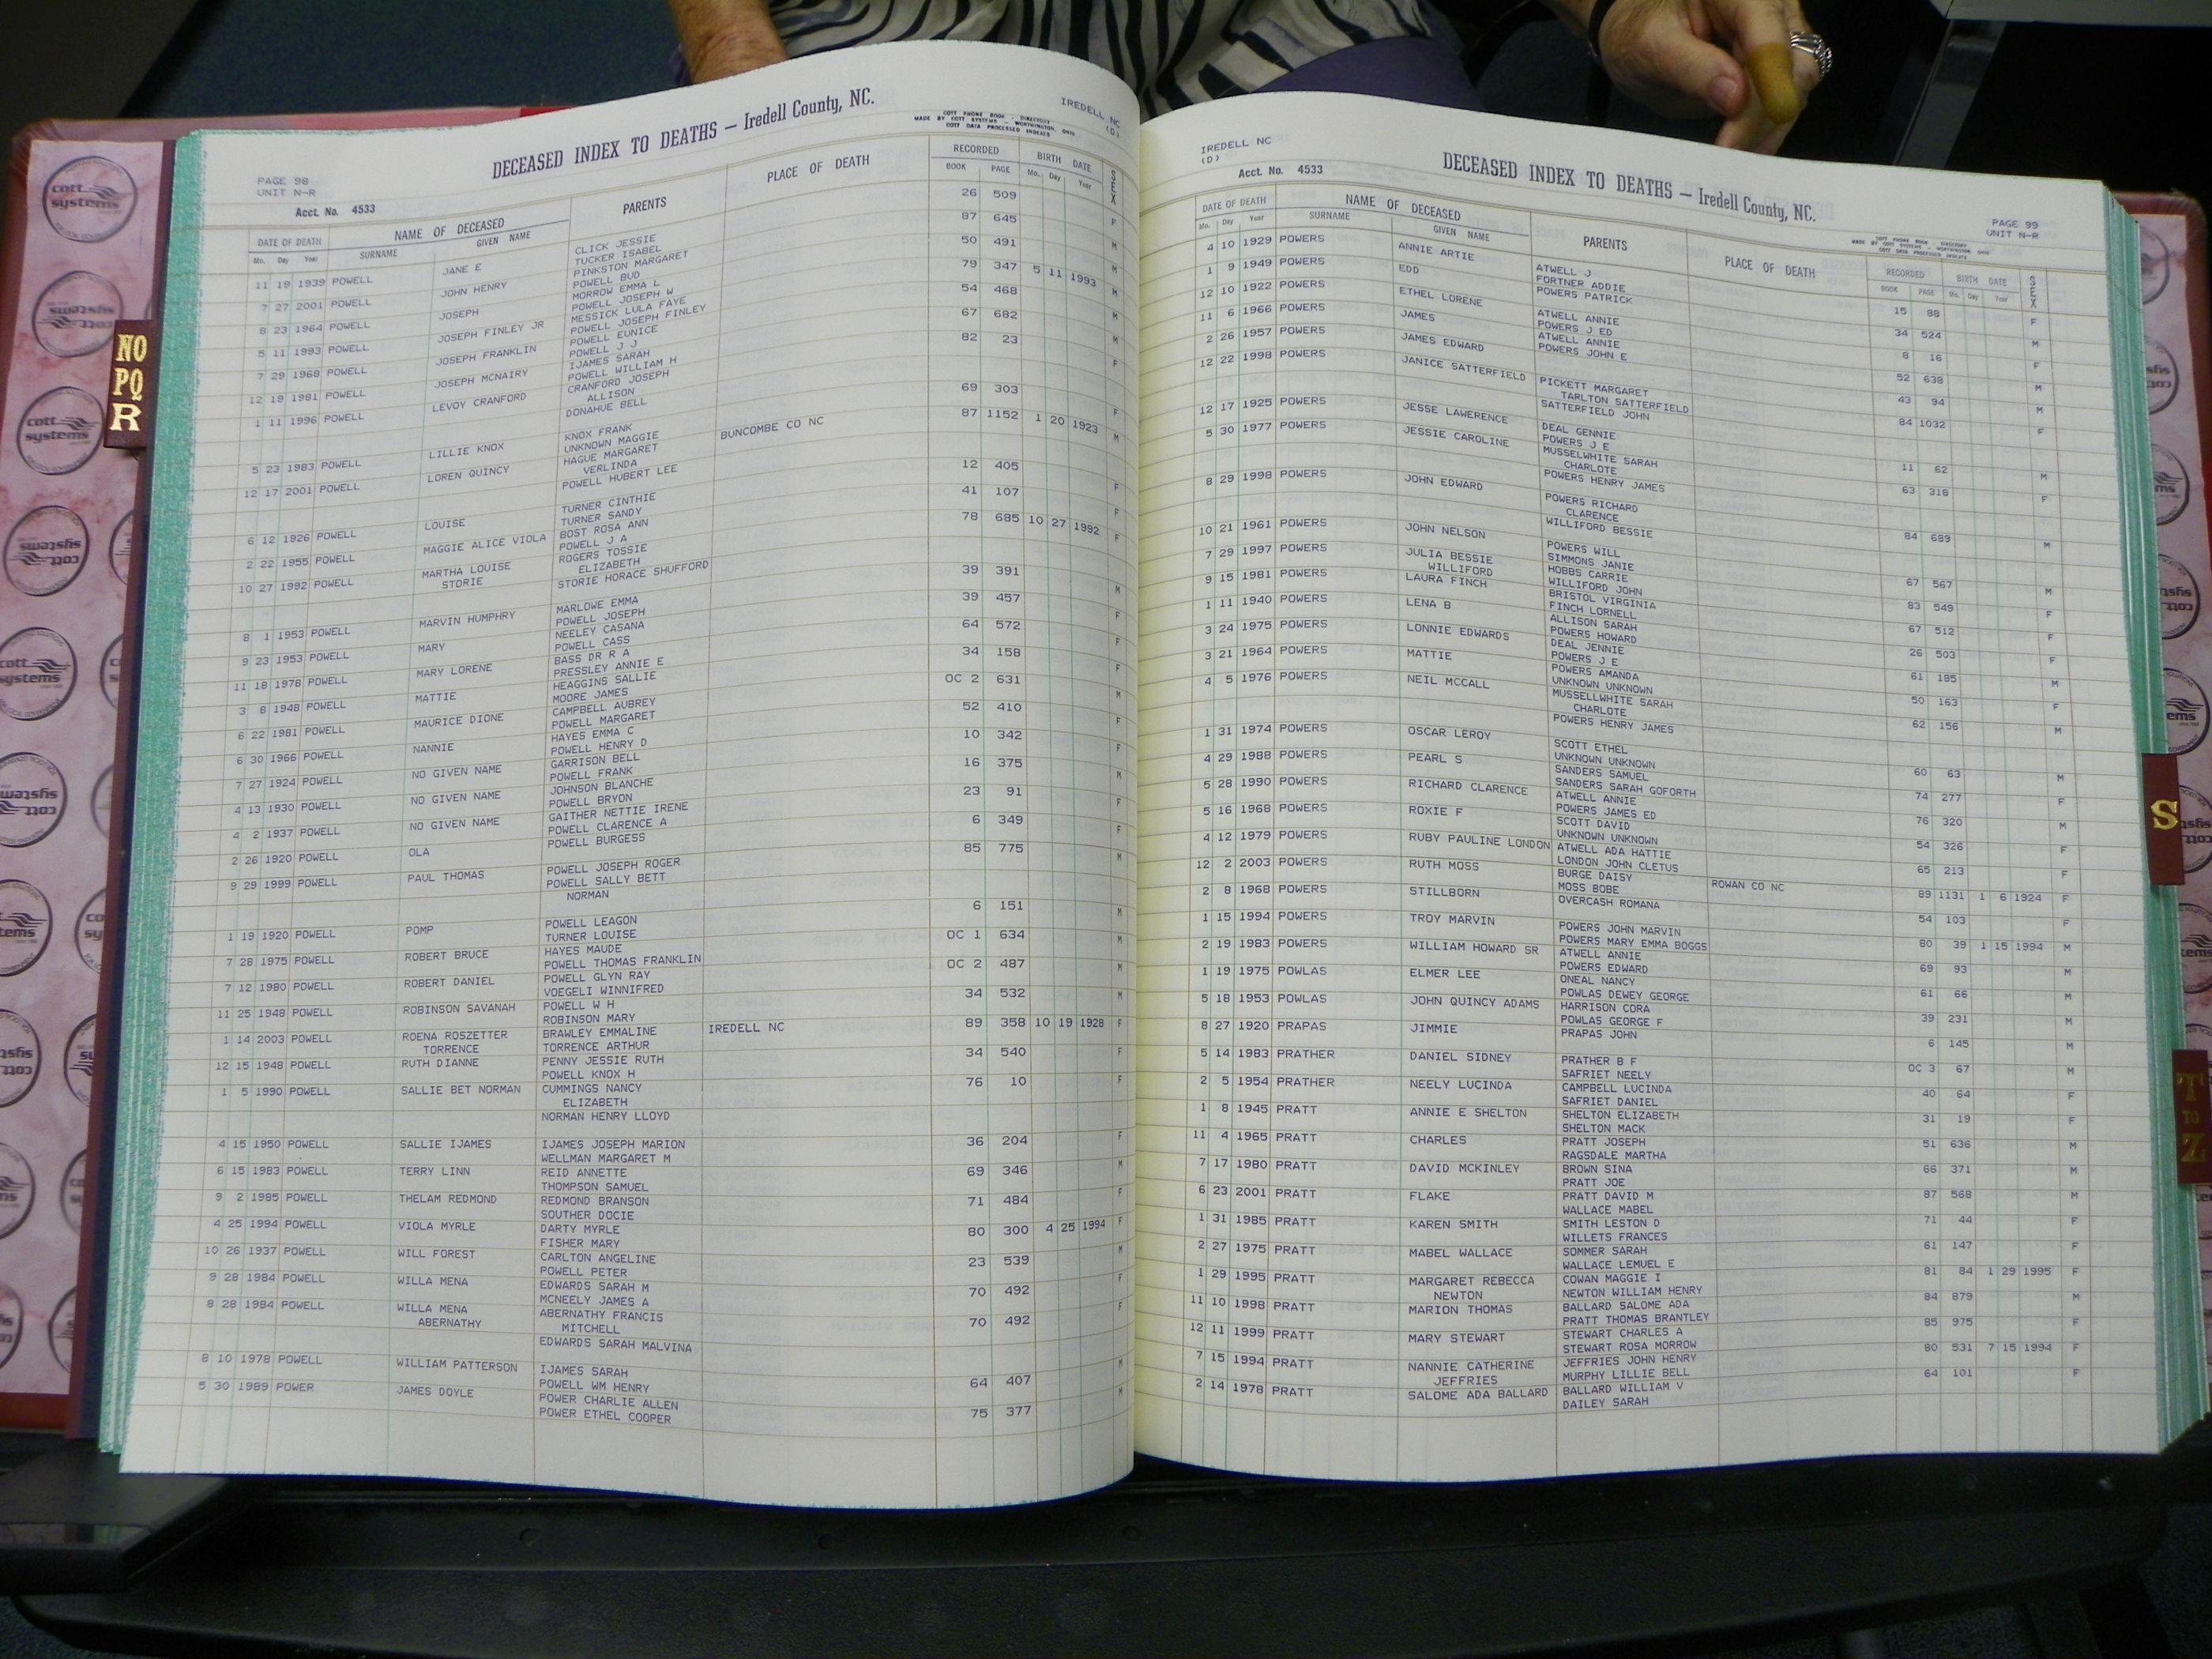 DECEASED INDEX TO DEATHS — Iredell County, NC.
IREDELL NC
(D)
COTT PHONE BOOK - DIRECTORY
MADE BY COTT SYSTEMS - WORTHINGTON, OHIO
COTT DATA PROCESSED INDEXES
PAGE 98
UNIT N-R
Acct. No. 4533
DATE OF DEATH NAME OF DECEASED PARENTS PLACE OF DEATH RECORDED BIRTH DATE SEX
Mo. Day Year SURNAME GIVEN NAME BOOK PAGE Mo. Day Year
11 19 1939 POWELL JANE E CLICK JESSIE 26 509 F
TUCKER ISABEL
7 27 2001 POWELL JOHN HENRY PINKSTON MARGARET 87 645 M
POWELL BUD
8 23 1964 POWELL JOSEPH MORROW EMMA L 50 491 M
POWELL JOSEPH W
5 11 1993 POWELL JOSEPH FINLEY JR MESSICK LULA FAYE 79 347 5 11 1993 M
POWELL JOSEPH FINLEY
7 29 1968 POWELL JOSEPH FRANKLIN POWELL EUNICE 54 468 M
POWELL J J
12 19 1981 POWELL JOSEPH MCNAIRY IJAMES SARAH 67 682 M
POWELL WILLIAM H
1 11 1996 POWELL LEVOY CRANFORD CRANFORD JOSEPH 82 23 F
ALLISON
DONAHUE BELL
5 23 1983 POWELL LILLIE KNOX KNOX FRANK 69 303 F
UNKNOWN MAGGIE
12 17 2001 POWELL LOREN QUINCY HAGUE MARGARET BUNCOMBE CO NC 87 1152 1 20 1923 M
VERLINDA
POWELL HUBERT LEE
6 12 1926 POWELL LOUISE TURNER CINTHIE 12 405 F
TURNER SANDY
2 22 1955 POWELL MAGGIE ALICE VIOLA BOST ROSA ANN 41 107 F
POWELL J A
10 27 1992 POWELL MARTHA LOUISE ROGERS TOSSIE 78 685 10 27 1992 F
STORIE ELIZABETH
STORIE HORACE SHUFFORD
8 1 1953 POWELL MARVIN HUMPHRY MARLOWE EMMA 39 391 M
POWELL JOSEPH
9 23 1953 POWELL MARY NEELEY CASANA 39 457 F
POWELL CASS
11 18 1978 POWELL MARY LORENE BASS DR R A 64 572 F
PRESSLEY ANNIE E
3 8 1948 POWELL MATTIE HEAGGINS SALLIE 34 158 F
MOORE JAMES
6 22 1981 POWELL MAURICE DIONE CAMPBELL AUBREY OC 2 631 M
POWELL MARGARET
6 30 1966 POWELL NANNIE HAYES EMMA C 52 410 F
POWELL HENRY D
7 27 1924 POWELL NO GIVEN NAME GARRISON BELL 10 342 F
POWELL FRANK
4 13 1930 POWELL NO GIVEN NAME JOHNSON BLANCHE 16 375 M
POWELL BRYON
4 2 1937 POWELL NO GIVEN NAME GAITHER NETTIE IRENE 23 91 F
POWELL CLARENCE A
2 26 1920 POWELL OLA POWELL BURGESS 6 349 F
9 29 1999 POWELL PAUL THOMAS POWELL JOSEPH ROGER 85 775 M
POWELL SALLY BETT
NORMAN
1 19 1920 POWELL POMP POWELL LEAGON 6 151 M
TURNER LOUISE
7 28 1975 POWELL ROBERT BRUCE HAYES MAUDE OC 1 634 M
POWELL THOMAS FRANKLIN
7 12 1980 POWELL ROBERT DANIEL POWELL GLYN RAY OC 2 487 M
VOEGELI WINNIFRED
11 25 1948 POWELL ROBINSON SAVANAH POWELL W H 34 532 M
ROBINSON MARY
1 14 2003 POWELL ROENA ROSZETTER BRAWLEY EMMALINE IREDELL NC 89 358 10 19 1928 F
TORRENCE TORRENCE ARTHUR
12 15 1948 POWELL RUTH DIANNE PENNY JESSIE RUTH 34 540 F
POWELL KNOX H
1 5 1990 POWELL SALLIE BET NORMAN CUMMINGS NANCY 76 10 F
ELIZABETH
NORMAN HENRY LLOYD
4 15 1950 POWELL SALLIE IJAMES IJAMES JOSEPH MARION 36 204 F
WELLMAN MARGARET M
6 15 1983 POWELL TERRY LINN REID ANNETTE 69 346 M
THOMPSON SAMUEL
9 2 1985 POWELL THELAM REDMOND REDMOND BRANSON 71 484 F
SOUTHER DOCIE
4 25 1994 POWELL VIOLA MYRLE DARTY MYRLE 80 300 4 25 1994 F
FISHER MARY
10 26 1937 POWELL WILL FOREST CARLTON ANGELINE 23 539 M
POWELL PETER
9 28 1984 POWELL WILLA MENA EDWARDS SARAH M 70 492 F
MCNEELY JAMES A
8 28 1984 POWELL WILLA MENA ABERNATHY FRANCIS 70 492 F
ABERNATHY MITCHELL
EDWARDS SARAH MALVINA
8 10 1978 POWELL WILLIAM PATTERSON IJAMES SARAH 64 407 M
POWELL WM HENRY
5 30 1989 POWER JAMES DOYLE POWER CHARLIE ALLEN 75 377 M
POWER ETHEL COOPER
IREDELL NC
(D)
Acct. No. 4533
DECEASED INDEX TO DEATHS — Iredell County, NC.
PAGE 99
UNIT N-R
COTT PHONE BOOK - DIRECTORY
MADE BY COTT SYSTEMS - WORTHINGTON, OHIO
COTT DATA PROCESSED INDEXES
DATE OF DEATH NAME OF DECEASED PARENTS PLACE OF DEATH RECORDED BIRTH DATE SEX
Mo. Day Year SURNAME GIVEN NAME BOOK PAGE Mo. Day Year
4 10 1929 POWERS ANNIE ARTIE ATWELL J 15 88 F
FORTNER ADDIE
1 9 1949 POWERS EDD POWERS PATRICK 34 524 M
12 10 1922 POWERS ETHEL LORENE ATWELL ANNIE 8 16 F
POWERS J ED
11 6 1966 POWERS JAMES ATWELL ANNIE 52 638 M
POWERS JOHN E
2 26 1957 POWERS JAMES EDWARD 43 94 M
12 22 1998 POWERS JANICE SATTERFIELD PICKETT MARGARET 84 1032 F
TARLTON SATTERFIELD
SATTERFIELD JOHN
12 17 1925 POWERS JESSE LAWERENCE DEAL GENNIE 11 62 M
POWERS J E
5 30 1977 POWERS JESSIE CAROLINE MUSSELWHITE SARAH 63 318 F
CHARLOTE
POWERS HENRY JAMES
8 29 1998 POWERS JOHN EDWARD POWERS RICHARD 84 689 M
CLARENCE
WILLIFORD BESSIE
10 21 1961 POWERS JOHN NELSON POWERS WILL 67 567 M
SIMMONS JANIE
7 29 1997 POWERS JULIA BESSIE HOBBS CARRIE 83 549 F
WILLIFORD WILLIFORD JOHN
9 15 1981 POWERS LAURA FINCH BRISTOL VIRGINIA 67 512 F
FINCH LORNELL
1 11 1940 POWERS LENA B ALLISON SARAH 26 503 F
POWERS HOWARD
3 24 1975 POWERS LONNIE EDWARDS DEAL JENNIE 61 185 M
POWERS J E
3 21 1964 POWERS MATTIE POWERS AMANDA 50 163 F
UNKNOWN UNKNOWN
4 5 1976 POWERS NEIL MCCALL MUSSELLWHITE SARAH 62 156 M
CHARLOTE
POWERS HENRY JAMES
1 31 1974 POWERS OSCAR LEROY SCOTT ETHEL 60 63 M
UNKNOWN UNKNOWN
4 29 1988 POWERS PEARL S SANDERS SAMUEL 74 277 F
SANDERS SARAH GOFORTH
5 28 1990 POWERS RICHARD CLARENCE ATWELL ANNIE 76 320 M
POWERS JAMES ED
5 16 1968 POWERS ROXIE F SCOTT DAVID 54 326 F
UNKNOWN UNKNOWN
4 12 1979 POWERS RUBY PAULINE LONDON ATWELL ADA HATTIE 65 213 F
LONDON JOHN CLETUS
12 2 2003 POWERS RUTH MOSS BURGE DAISY ROWAN CO NC 89 1131 1 6 1924 F
MOSS BOBE
2 8 1968 POWERS STILLBORN OVERCASH ROMANA 54 103 F
1 15 1994 POWERS TROY MARVIN POWERS JOHN MARVIN 80 39 1 15 1994 M
POWERS MARY EMMA BOGGS
2 19 1983 POWERS WILLIAM HOWARD SR ATWELL ANNIE 69 93 M
POWERS EDWARD
1 19 1975 POWLAS ELMER LEE ONEAL NANCY 61 66 M
POWLAS DEWEY GEORGE
5 18 1953 POWLAS JOHN QUINCY ADAMS HARRISON CORA 39 231 M
POWLAS GEORGE F
8 27 1920 PRAPAS JIMMIE PRAPAS JOHN 6 145 M
5 14 1983 PRATHER DANIEL SIDNEY PRATHER B F OC 3 67 M
SAFRIET NEELY
2 5 1954 PRATHER NEELY LUCINDA CAMPBELL LUCINDA 40 64 F
SAFRIET DANIEL
1 8 1945 PRATT ANNIE E SHELTON SHELTON ELIZABETH 31 19 F
SHELTON MACK
11 4 1965 PRATT CHARLES PRATT JOSEPH 51 636 M
RAGSDALE MARTHA
7 17 1980 PRATT DAVID MCKINLEY BROWN SINA 66 371 M
PRATT JOE
6 23 2001 PRATT FLAKE PRATT DAVID M 87 568 M
WALLACE MABEL
1 31 1985 PRATT KAREN SMITH SMITH LESTON D 71 44 F
WILLETS FRANCES
2 27 1975 PRATT MABEL WALLACE SOMMER SARAH 61 147 F
WALLACE LEMUEL E
1 29 1995 PRATT MARGARET REBECCA COWAN MAGGIE I 81 84 1 29 1995 F
NEWTON NEWTON WILLIAM HENRY
11 10 1998 PRATT MARION THOMAS BALLARD SALOME ADA 84 879 M
PRATT THOMAS BRANTLEY
12 11 1999 PRATT MARY STEWART STEWART CHARLES A 85 975 F
STEWART ROSA MORROW
7 15 1994 PRATT NANNIE CATHERINE JEFFRIES JOHN HENRY 80 531 7 15 1994 F
JEFFRIES MURPHY LILLIE BELL
2 14 1978 PRATT SALOME ADA BALLARD BALLARD WILLIAM V 64 101 F
DAILEY SARAH
NO
PQ
R
S
T
TO
Z
cott
systems